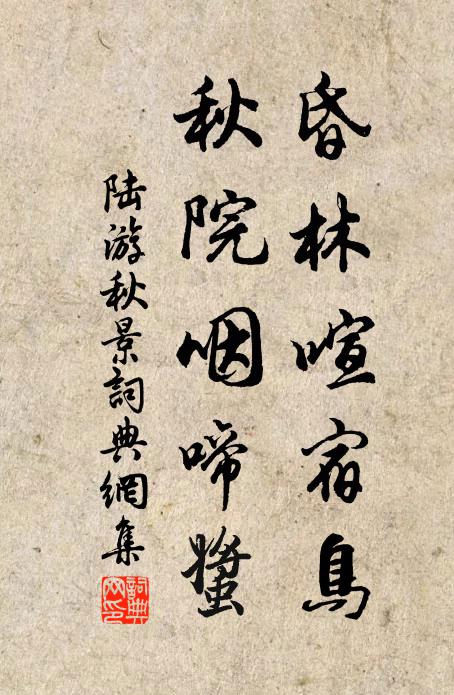 昏林喧宿鳥
秋院咽啼螿
陆游秋景詞典網集
詞典網印